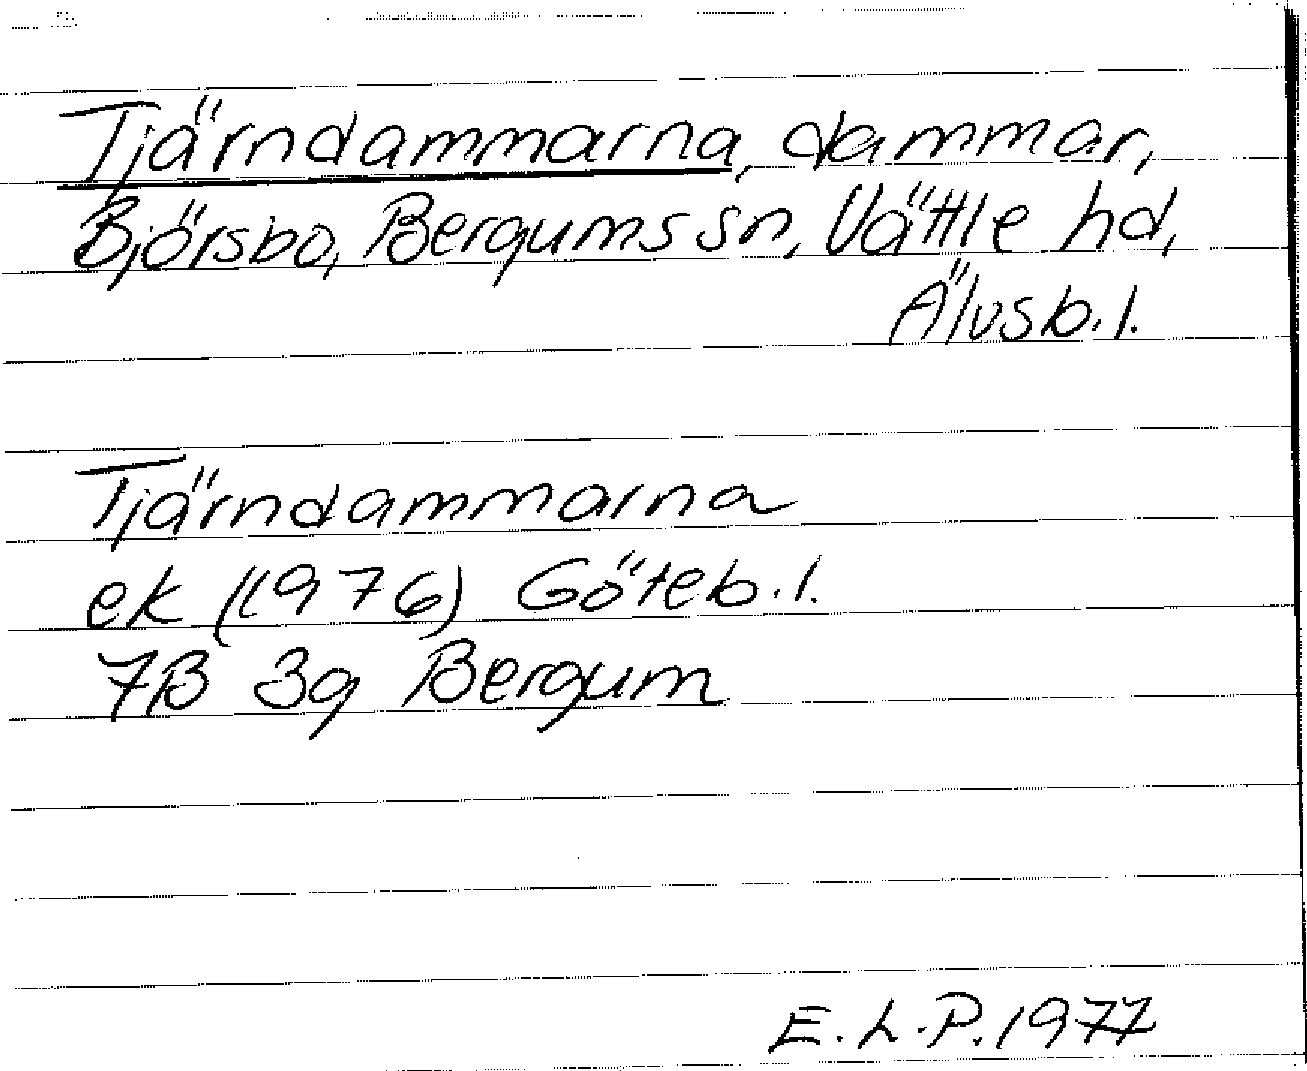 Tjärndammarna, dammar,
Björsbo, Bergums sn, Vättle hd,
Älvsb. l.
Tjärndammarna
ek (1976) Göteb. l.
7B 3g Bergum
E. L. P. 1977